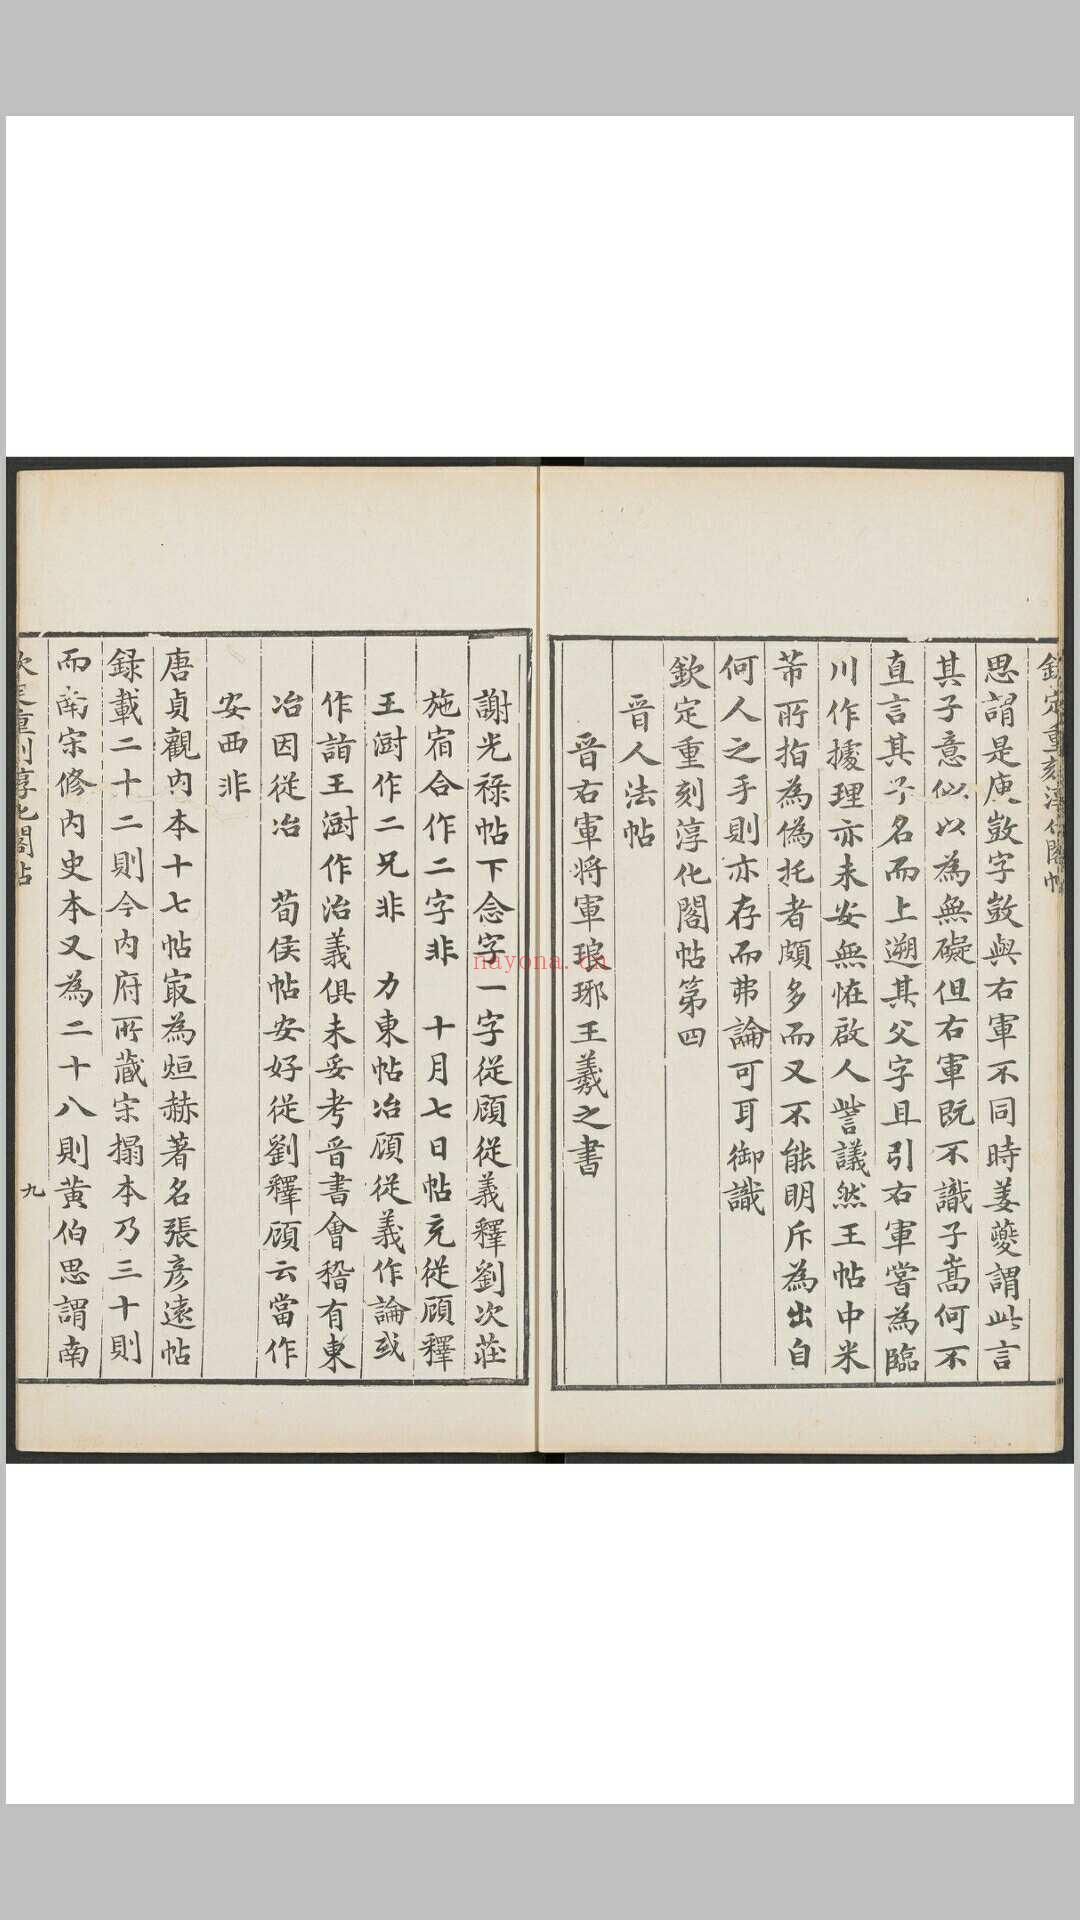 欽定重刻淳化閣帖
思謂是庾敳字敳與右軍不同時姜夔謂此言
其子意似以為無礙但右軍既不識子嵩何不
直言其子名而上遡其父字且引右軍嘗為臨
川作據理亦未安無恠啟人訾議然王帖中米
芾所指為偽托者頗多而又不能明斥為出自
何人之手則亦存而弗論可耳御識
欽定重刻淳化閣帖第四
晉人法帖
晉右軍將軍琅琊王羲之書
謝光祿帖下念字一字從顧從義釋劉次莊
施宿合作二字非 十月七日帖充從顧釋
王澍作二兄非 力東帖冶顧從義作論或
作詣王澍作治義俱未妥考晉書會稽有東
冶因從冶 荀侯帖安好從劉釋顧云當作
安西非
唐貞觀內本十七帖㝡為烜赫著名張彥遠帖
錄載二十二則今內府所藏宋搨本乃三十則
而南宋修內史本又為二十八則黃伯思謂南
欽定重刻淳化閣帖
九
nayona.cn